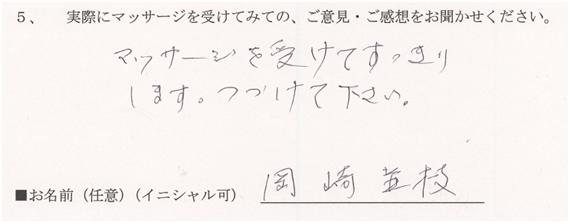 5、 実際にマッサージを受けてみての、ご意見・ご感想をお聞かせください。
マッサージを受けてすっきり
します。つづけて下さい。
■お名前（任意）（イニシャル可） 岡崎 枝